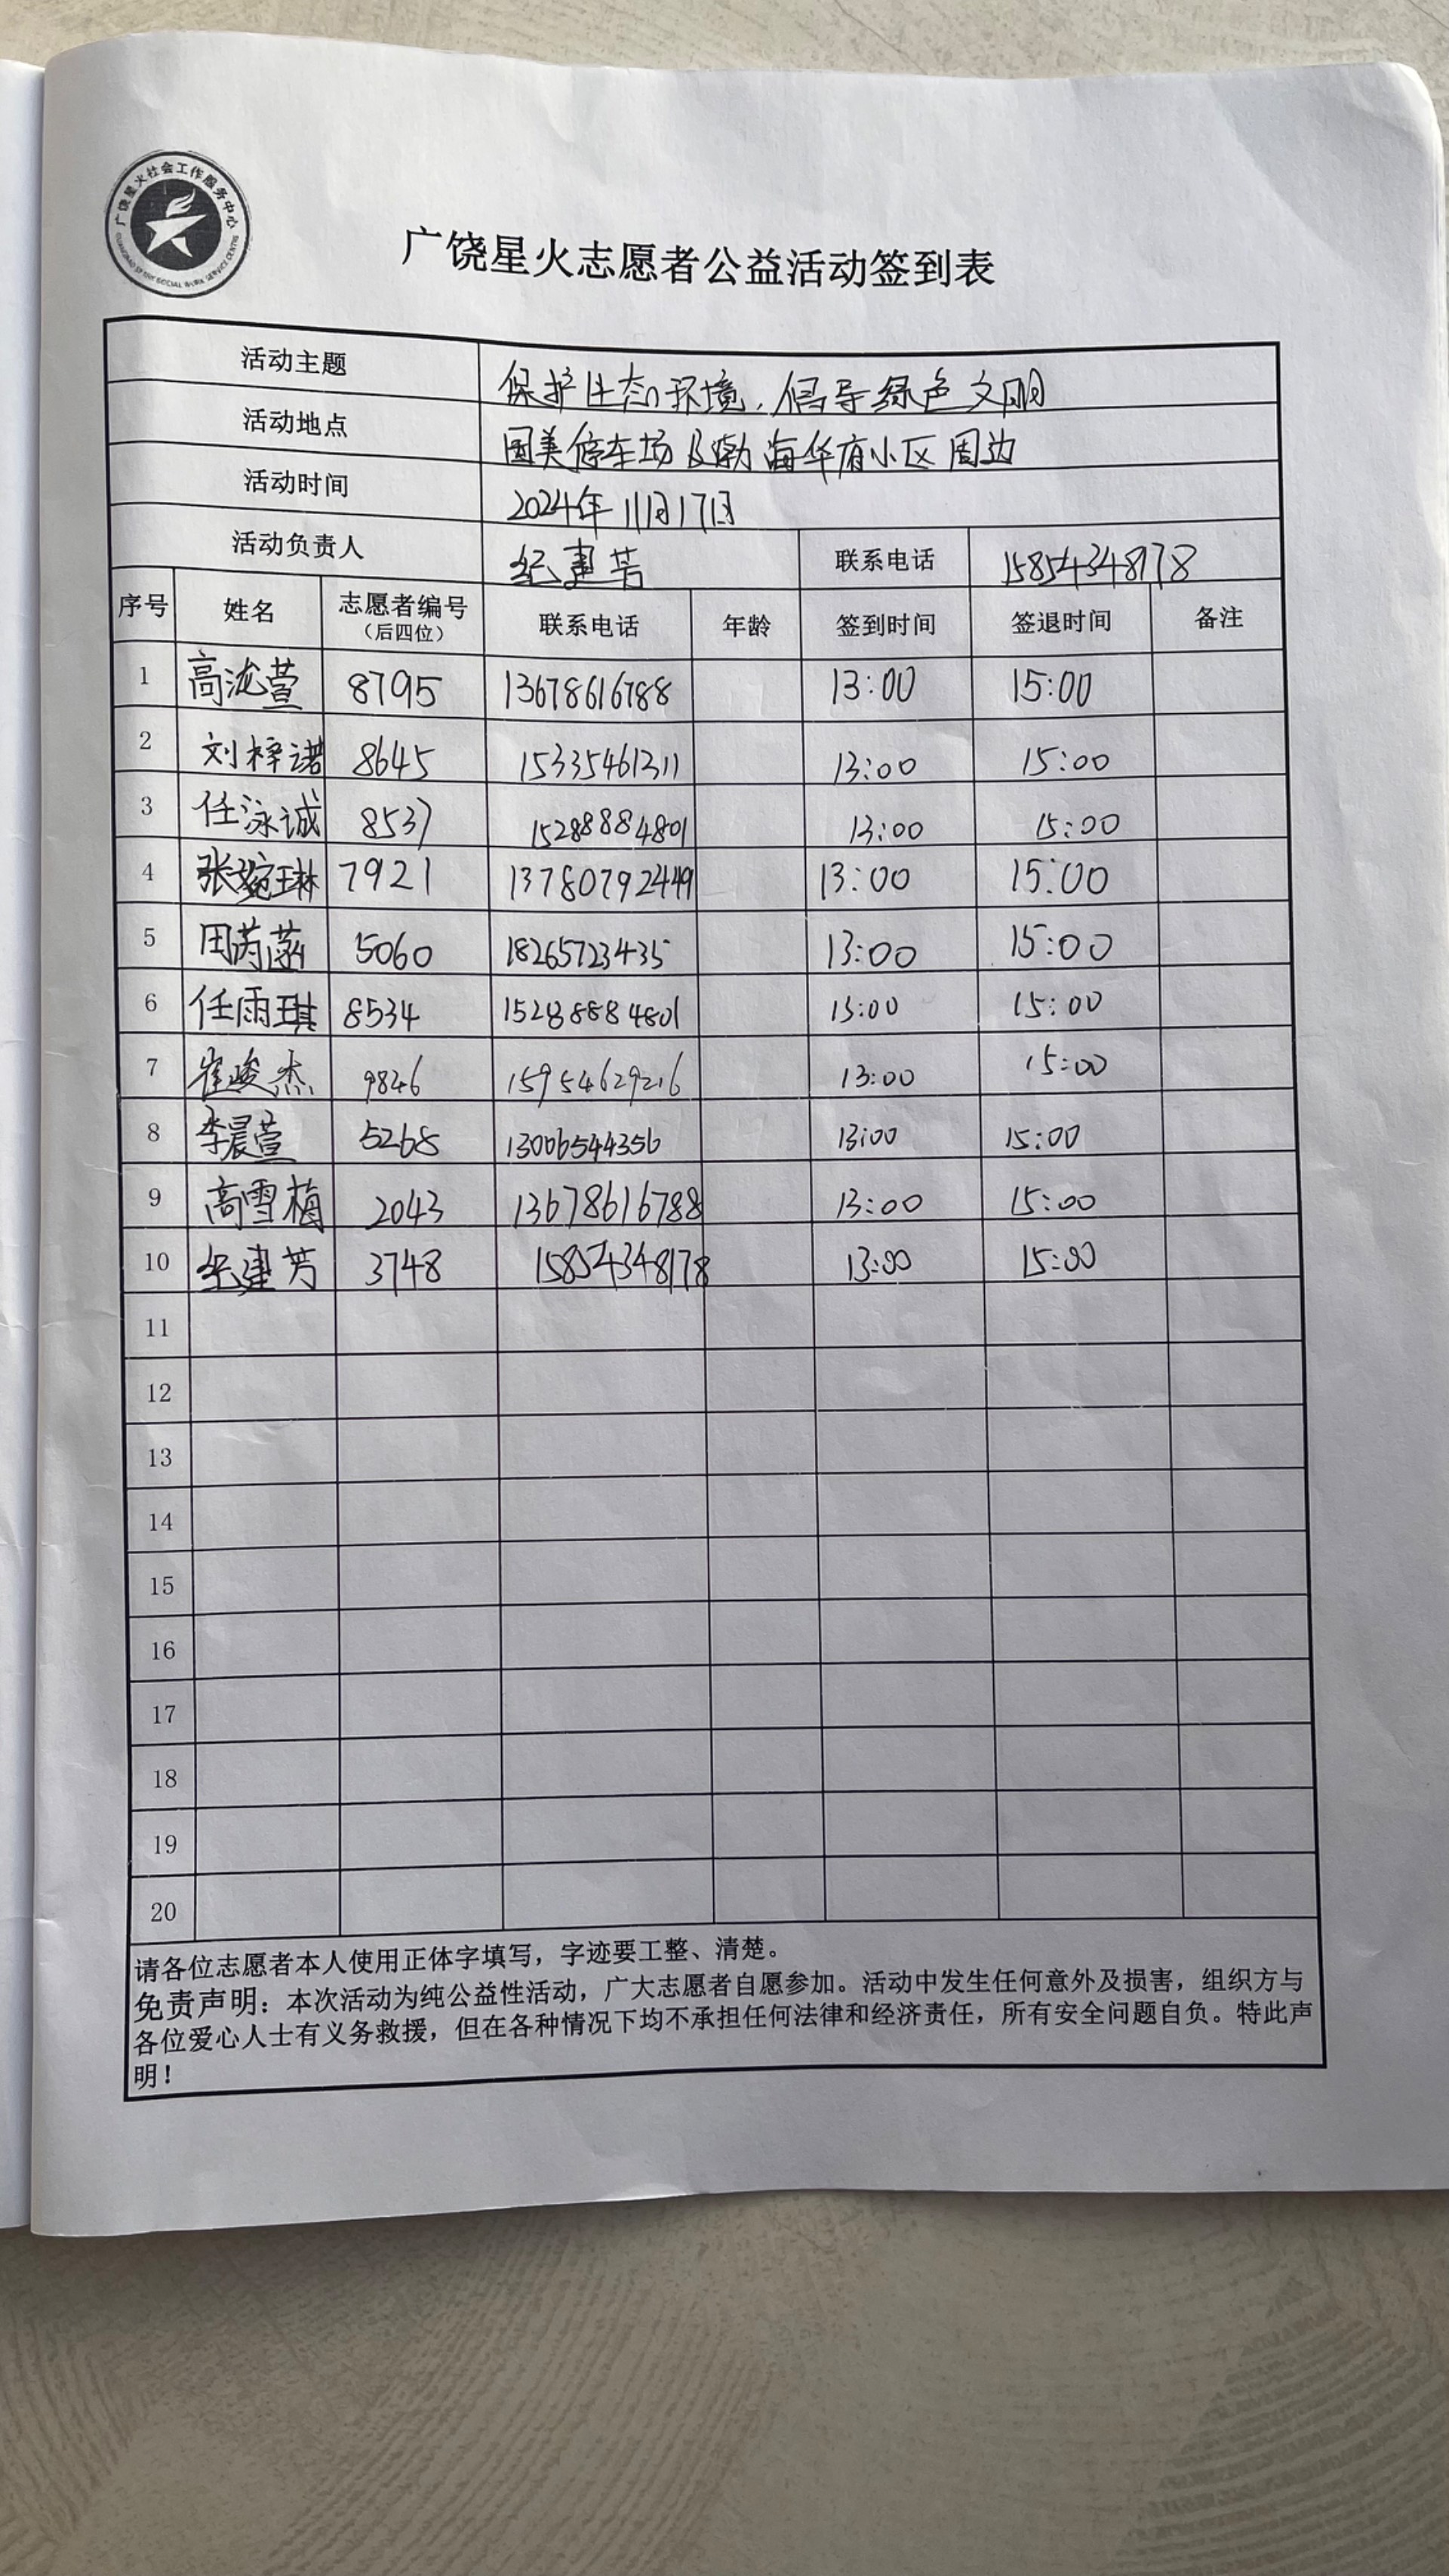 广饶星火社会工作服务中心
GUANGRAO SPARK SOCIAL WORK SERVICE CENTRE
广饶星火志愿者公益活动签到表
活动主题 保护生态环境，倡导绿色文明
活动地点 国美停车场及渤海华府小区周边
活动时间 2024年11月17日
活动负责人 纪建芳 联系电话 15854348178
序号 姓名 志愿者编号（后四位） 联系电话 年龄 签到时间 签退时间 备注
1 高泷萱 8795 13678616788 13:00 15:00
2 刘梓诺 8645 15335461311 13:00 15:00
3 任泳诚 8537 15288884801 13:00 15:00
4 张婉琳 7921 13780792449 13:00 15:00
5 田芮菡 5060 18265723435 13:00 15:00
6 任雨琪 8534 15288884801 13:00 15:00
7 崔峻杰 9846 15954629216 13:00 15:00
8 李晨萱 5268 13006544356 13:00 15:00
9 高雪梅 2043 13678616788 13:00 15:00
10 纪建芳 3748 15854348178 13:00 15:00
11
12
13
14
15
16
17
18
19
20
请各位志愿者本人使用正体字填写，字迹要工整、清楚。
免责声明：本次活动为纯公益性活动，广大志愿者自愿参加。活动中发生任何意外及损害，组织方与
各位爱心人士有义务救援，但在各种情况下均不承担任何法律和经济责任，所有安全问题自负。特此声
明！